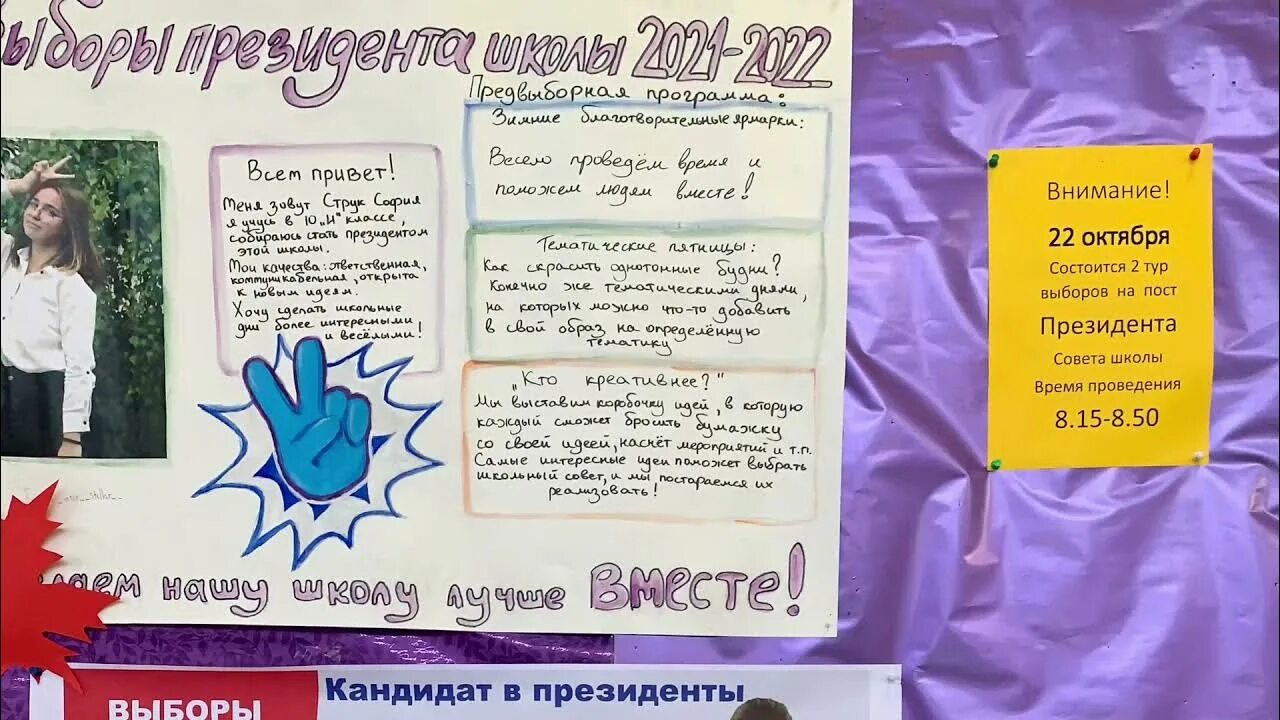 ыборы президента школы 2021-2022
Всем привет!
Меня зовут Струк София
я учусь в 10 „И" классе,
собираюсь стать президентом
этой школы.
Мои качества: ответственная,
коммуникабельная, открыта
к новым идеям.
Хочу сделать школьные
дни более интересными
и весёлыми!
Предвыборная программа:
Зимние благотворительные ярмарки:
Весело проведём время и
поможем людям вместе!
Тематические пятницы:
Как скрасить однотонные будни?
Конечно же тематическими днями,
на которых можно что-то добавить
в свой образ на определённую
тематику
„Кто креативнее?"
Мы выставим коробочку идей, в которую
каждый сможет бросить бумажку
со своей идеей, насчёт мероприятий и т.п.
Самые интересные идеи поможет выбрать
школьный совет, и мы постараемся их
реализовать!
лаем нашу школу лучше Вместе!
Внимание!
22 октября
Состоится 2 тур
выборов на пост
Президента
Совета школы
Время проведения
8.15-8.50
ВЫБОРЫ
Кандидат в президенты